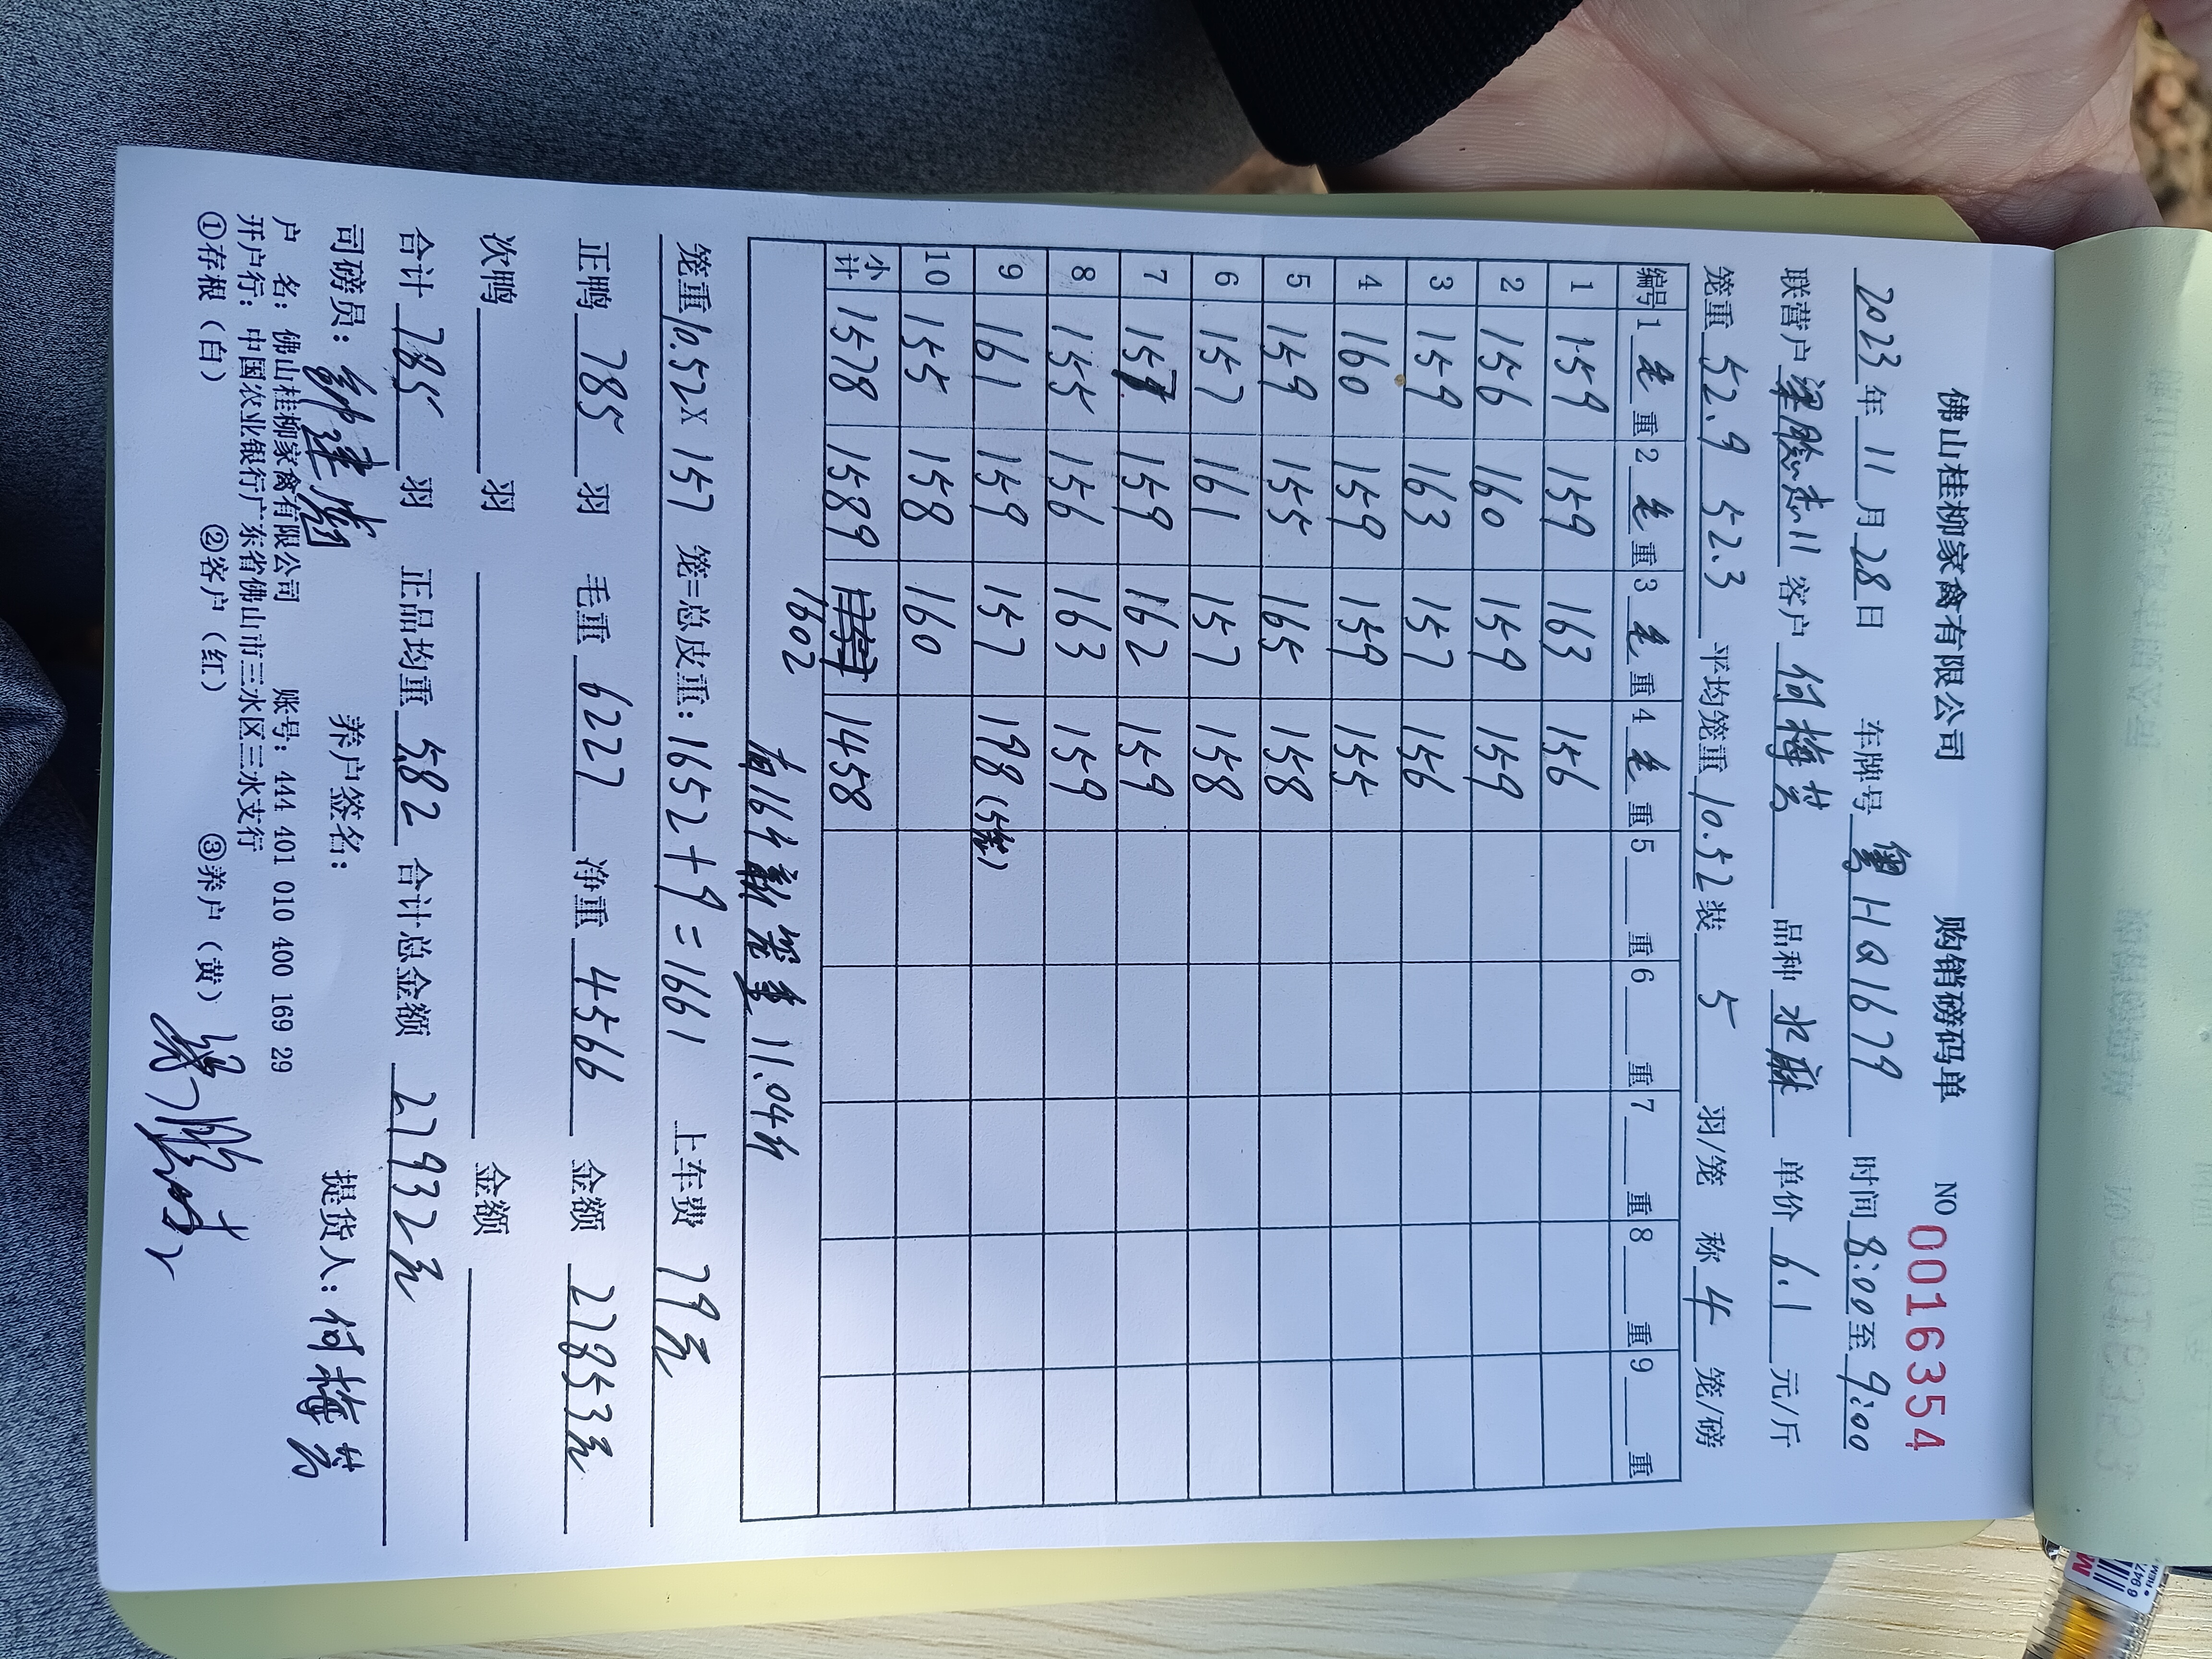 佛山桂柳家禽有限公司 购销磅码单 NO 0016354
2023年11月28日 车牌号 粤HQ1679 时间 8:00至9:00
联营户 客户 何梅芳 品种 水麻 单价 6.1 元/斤
笼重 52.9 52.3 平均笼重 10.52 装 5 羽/笼 称 4 笼/磅
编号 1 毛 重 2 毛 重 3 毛 重 4 毛 重 5 重 6 重 7 重 8 重 9 重
1 159 159 163 156
2 156 160 159 159
3 159 163 157 156
4 160 159 159 155
5 159 155 165 158
6 157 161 157 158
7 157 159 162 159
8 155 156 163 159
9 161 159 157 198(5笼)
10 155 158 160
小计 1578 1589 1458
1602
有16个新笼重11.04斤
笼重10.52×157 笼=总皮重:1652+9=1661 上车费 79元
正鸭 785 羽 毛重 6227 净重 4566 金额 27853元
次鸭 羽 金额
合计 785 羽 正品均重 5.82 合计总金额 27932元
司磅员: 养户签名: 提货人:何梅芳
户 名:佛山桂柳家禽有限公司 账号:444 401 010 400 169 29
开户行:中国农业银行广东省佛山市三水区三水支行
①存根(白) ②客户(红) ③养户(黄)